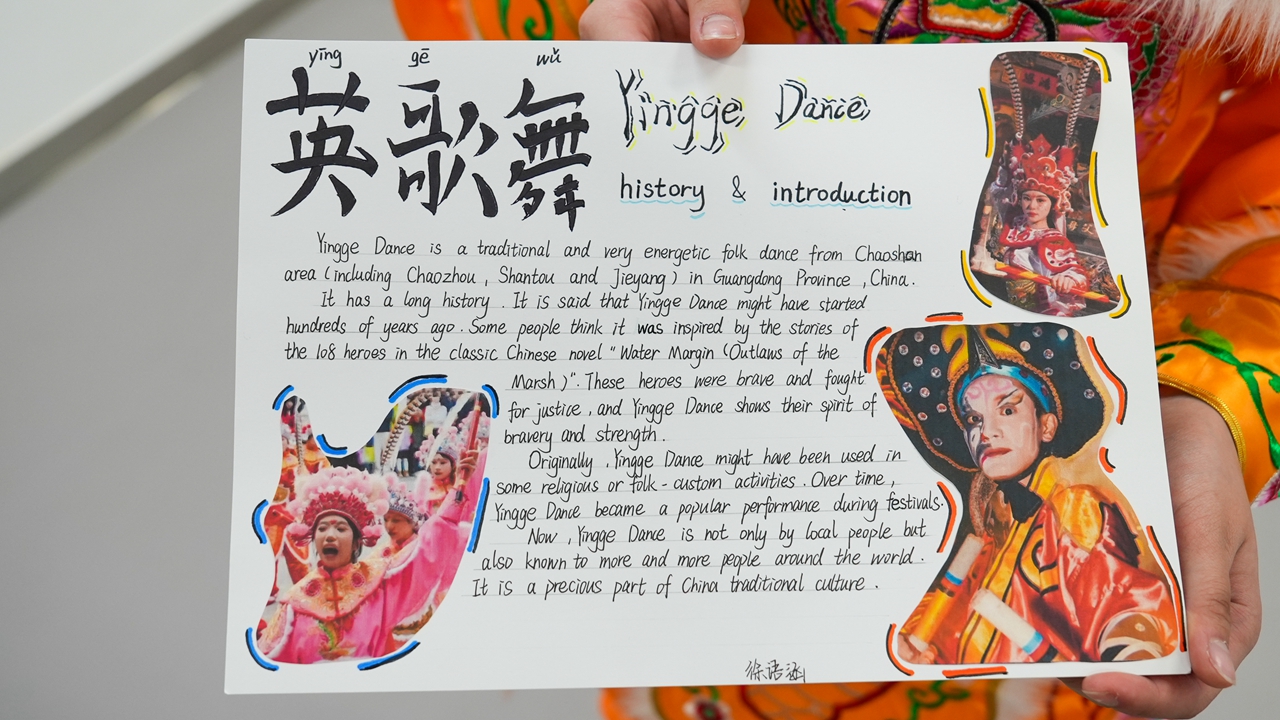 yīng gē wǔ
英歌舞
Yingge Dance
history & introduction
Yingge Dance is a traditional and very energetic folk dance from Chaoshan
area (including Chaozhou, Shantou and Jieyang) in Guangdong Province, China.
It has a long history. It is said that Yingge Dance might have started
hundreds of years ago. Some people think it was inspired by the stories of
the 108 heroes in the classic Chinese novel "Water Margin (Outlaws of the
Marsh)". These heroes were brave and fought
for justice, and Yingge Dance shows their spirit of
bravery and strength.
Originally, Yingge Dance might have been used in
some religious or folk-custom activities. Over time,
Yingge Dance became a popular performance during festivals.
Now, Yingge Dance is not only by local people but
also known to more and more people around the world.
It is a precious part of China traditional culture.
徐语涵